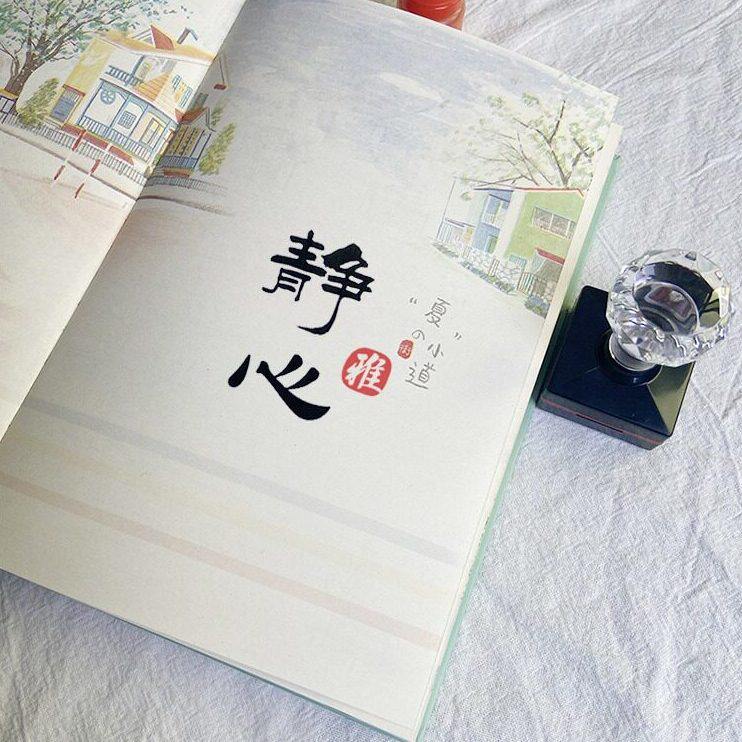 静心
雅
“夏”の小道